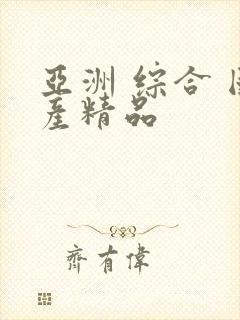 亞洲 綜合
產精品
齊有偉